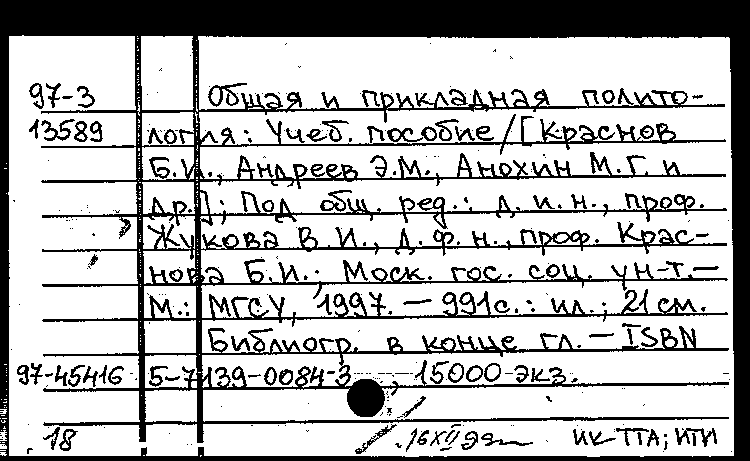 97-3 Общая и прикладная полито-
13589 логия: Учеб. пособие / [Краснов
Б.И., Андреев Э.М., Анохин М.Г. и
др.]; Под общ. ред.: д. и. н., проф.
Жукова В.И., д. ф. н., проф. Крас-
нова Б.И.; Моск. гос. соц. ун-т. —
М.: МГСУ, 1997. — 991с.: ил.; 21 см.
Библиогр. в конце гл. — ISBN
97-45416 5-7139-0084-3, 15000 экз.
18 ИК-ТТА; ИТИ